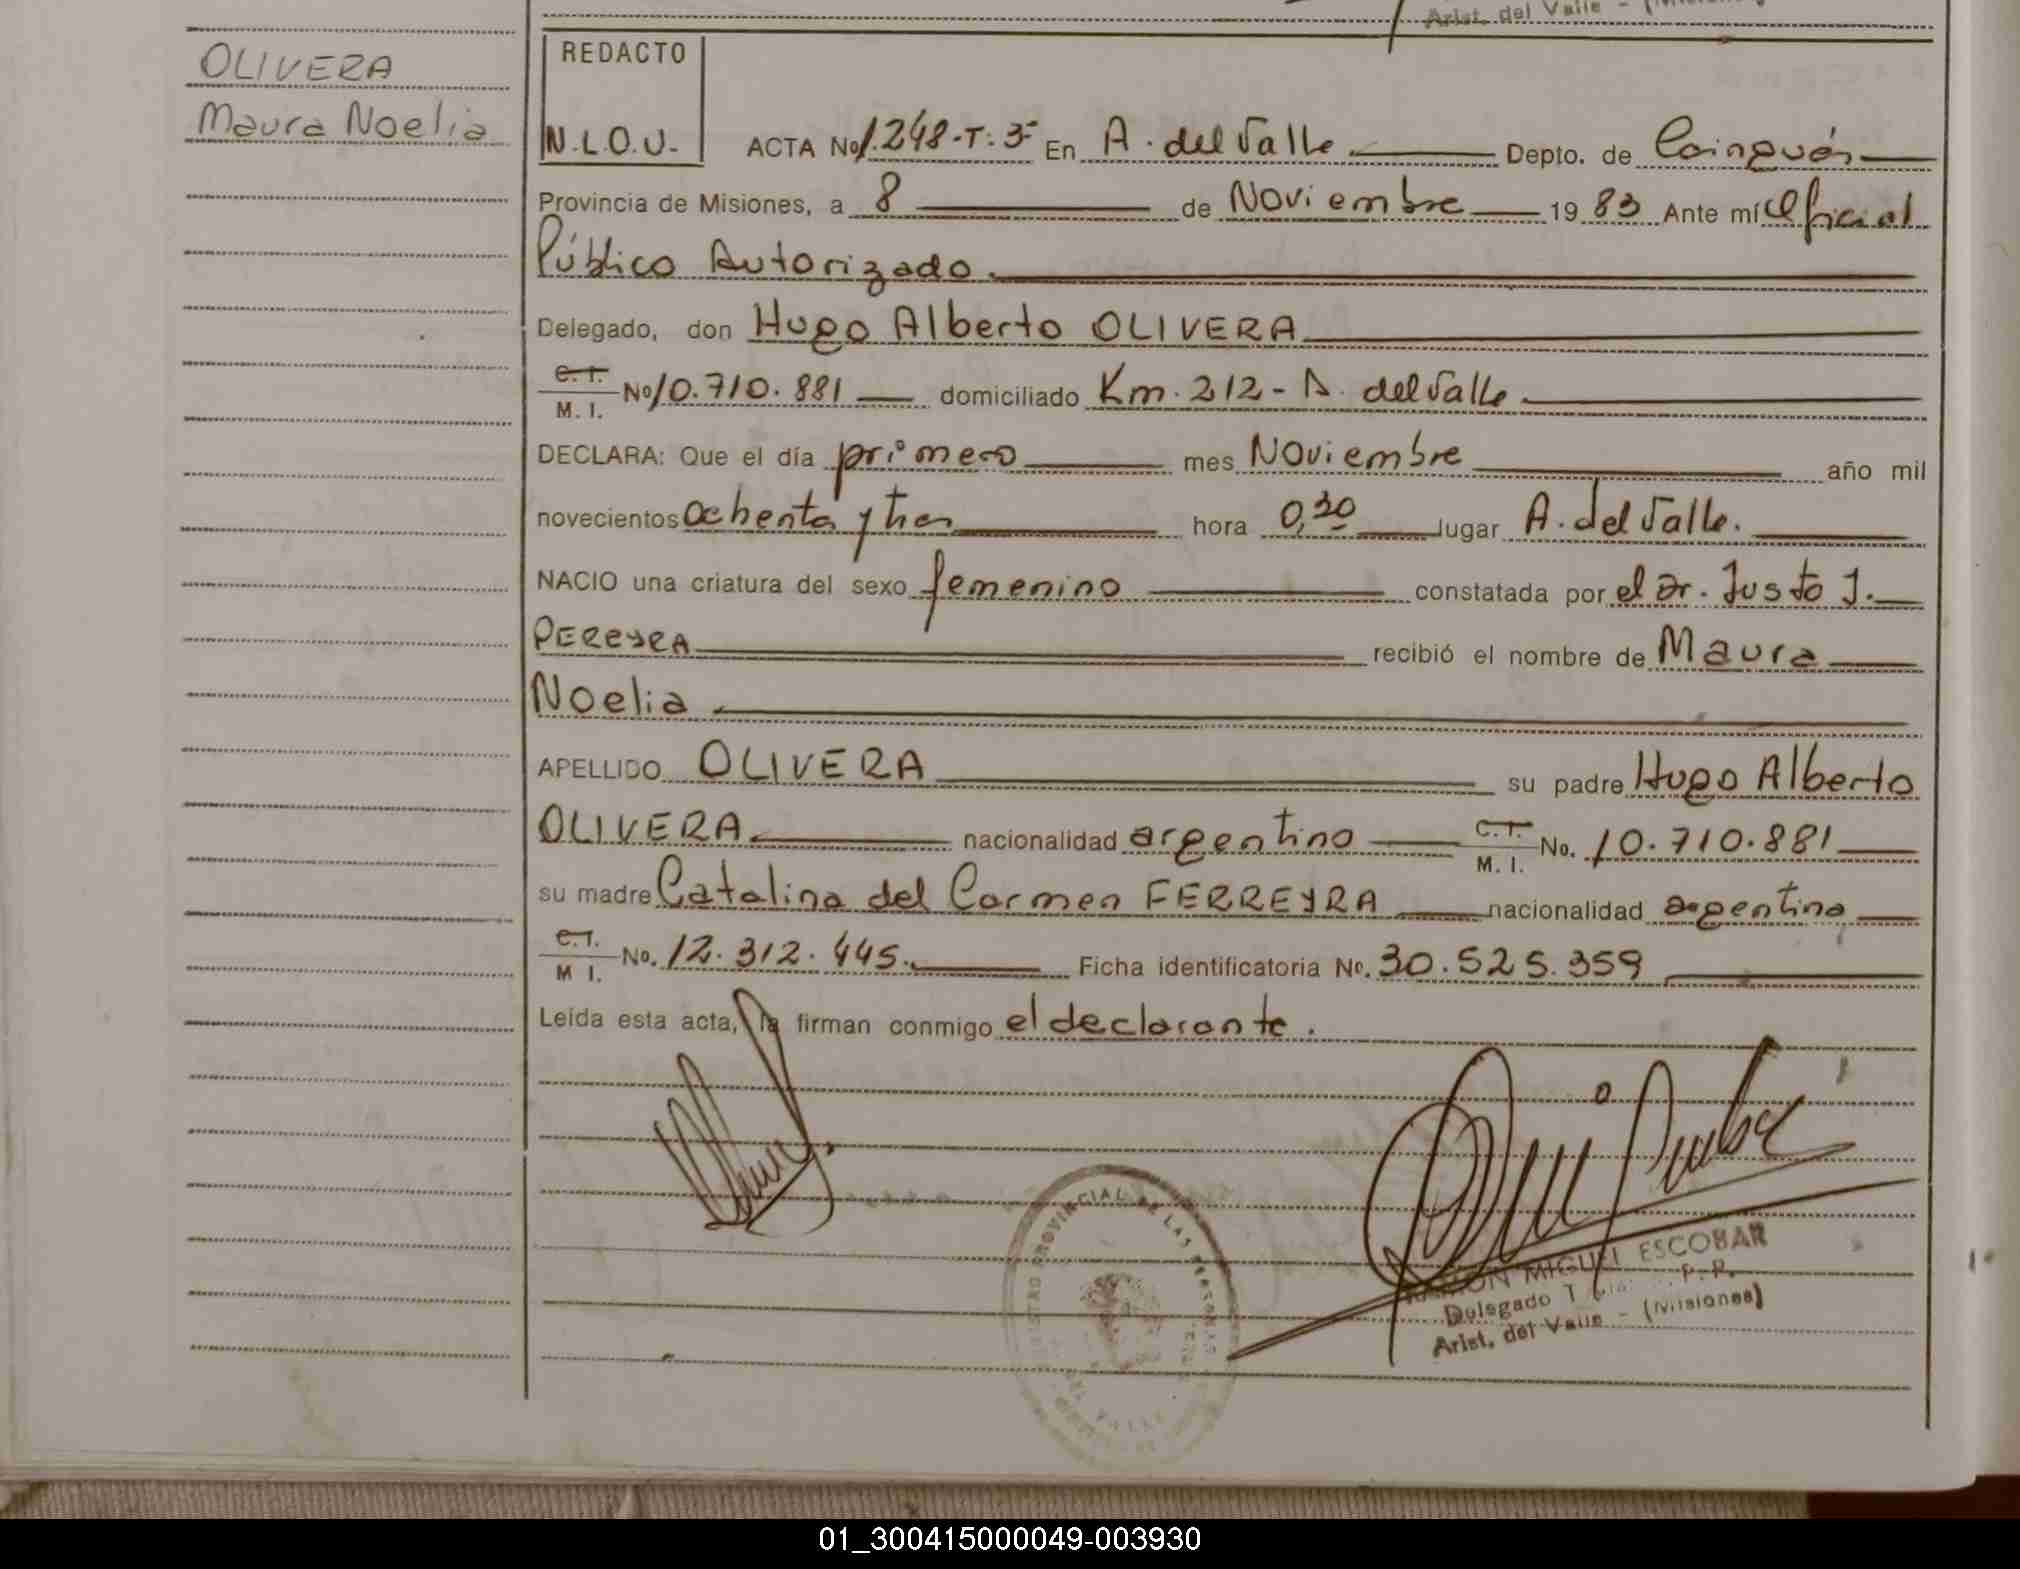 Arist. del Valle - (Misiones)
OLIVERA
Maura Noelia
REDACTO
N.L.O.U.
ACTA No 1.248-T:3- En A. del Valle Depto. de Cainguás
Provincia de Misiones, a 8 de Noviembre 19 83 Ante mí Oficial
Público Autorizado
Delegado, don Hugo Alberto OLIVERA
C. I. M. I. No 10.710.881 domiciliado Km. 212 - A. del Valle
DECLARA: Que el día primero mes Noviembre año mil
novecientos ochenta y tres hora 0,30 lugar A. del Valle.
NACIO una criatura del sexo femenino constatada por el Dr. Justo J.
PEREYRA recibió el nombre de Maura
Noelia
APELLIDO OLIVERA su padre Hugo Alberto
OLIVERA nacionalidad argentino C. I. M. I. No. 10.710.881
su madre Catalina del Carmen FERREYRA nacionalidad argentina
C. I. M I. No. 12.312.445. Ficha identificatoria No. 30.525.359
Leída esta acta, la firman conmigo el declarante.
PROVINCIAL DE LAS PERSONAS
RAMON MIGUEL ESCOBAR
Delegado
Arist. del Valle - (Misiones)
01_300415000049-003930